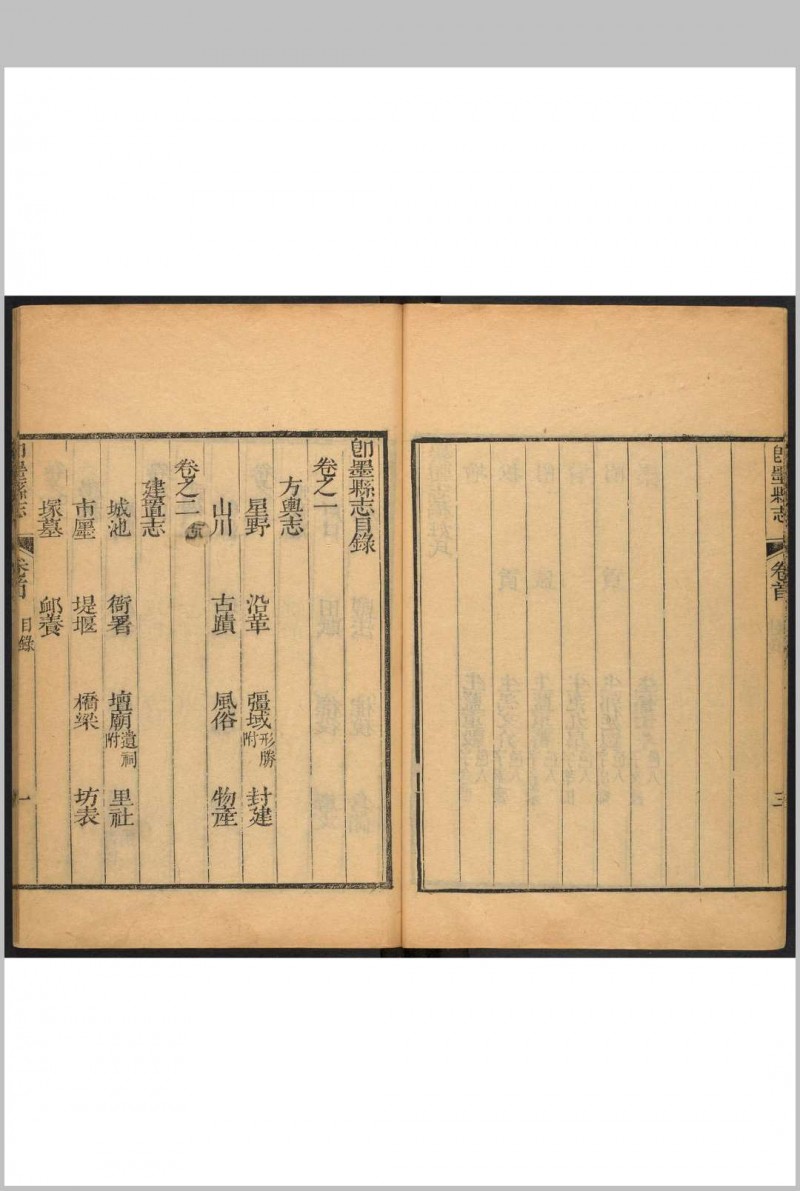 卽墨縣志
卷首
三
卽墨縣志目錄
卷之一
方輿志
星野 沿革 疆域形勝附 封建
山川 古蹟 風俗 物產
卷之二
建置志
城池 衙署 壇廟遺祠附 里社
市廛 堤堰 橋梁 坊表
塚墓 卹養
卽墨縣志
卷首
目錄
一